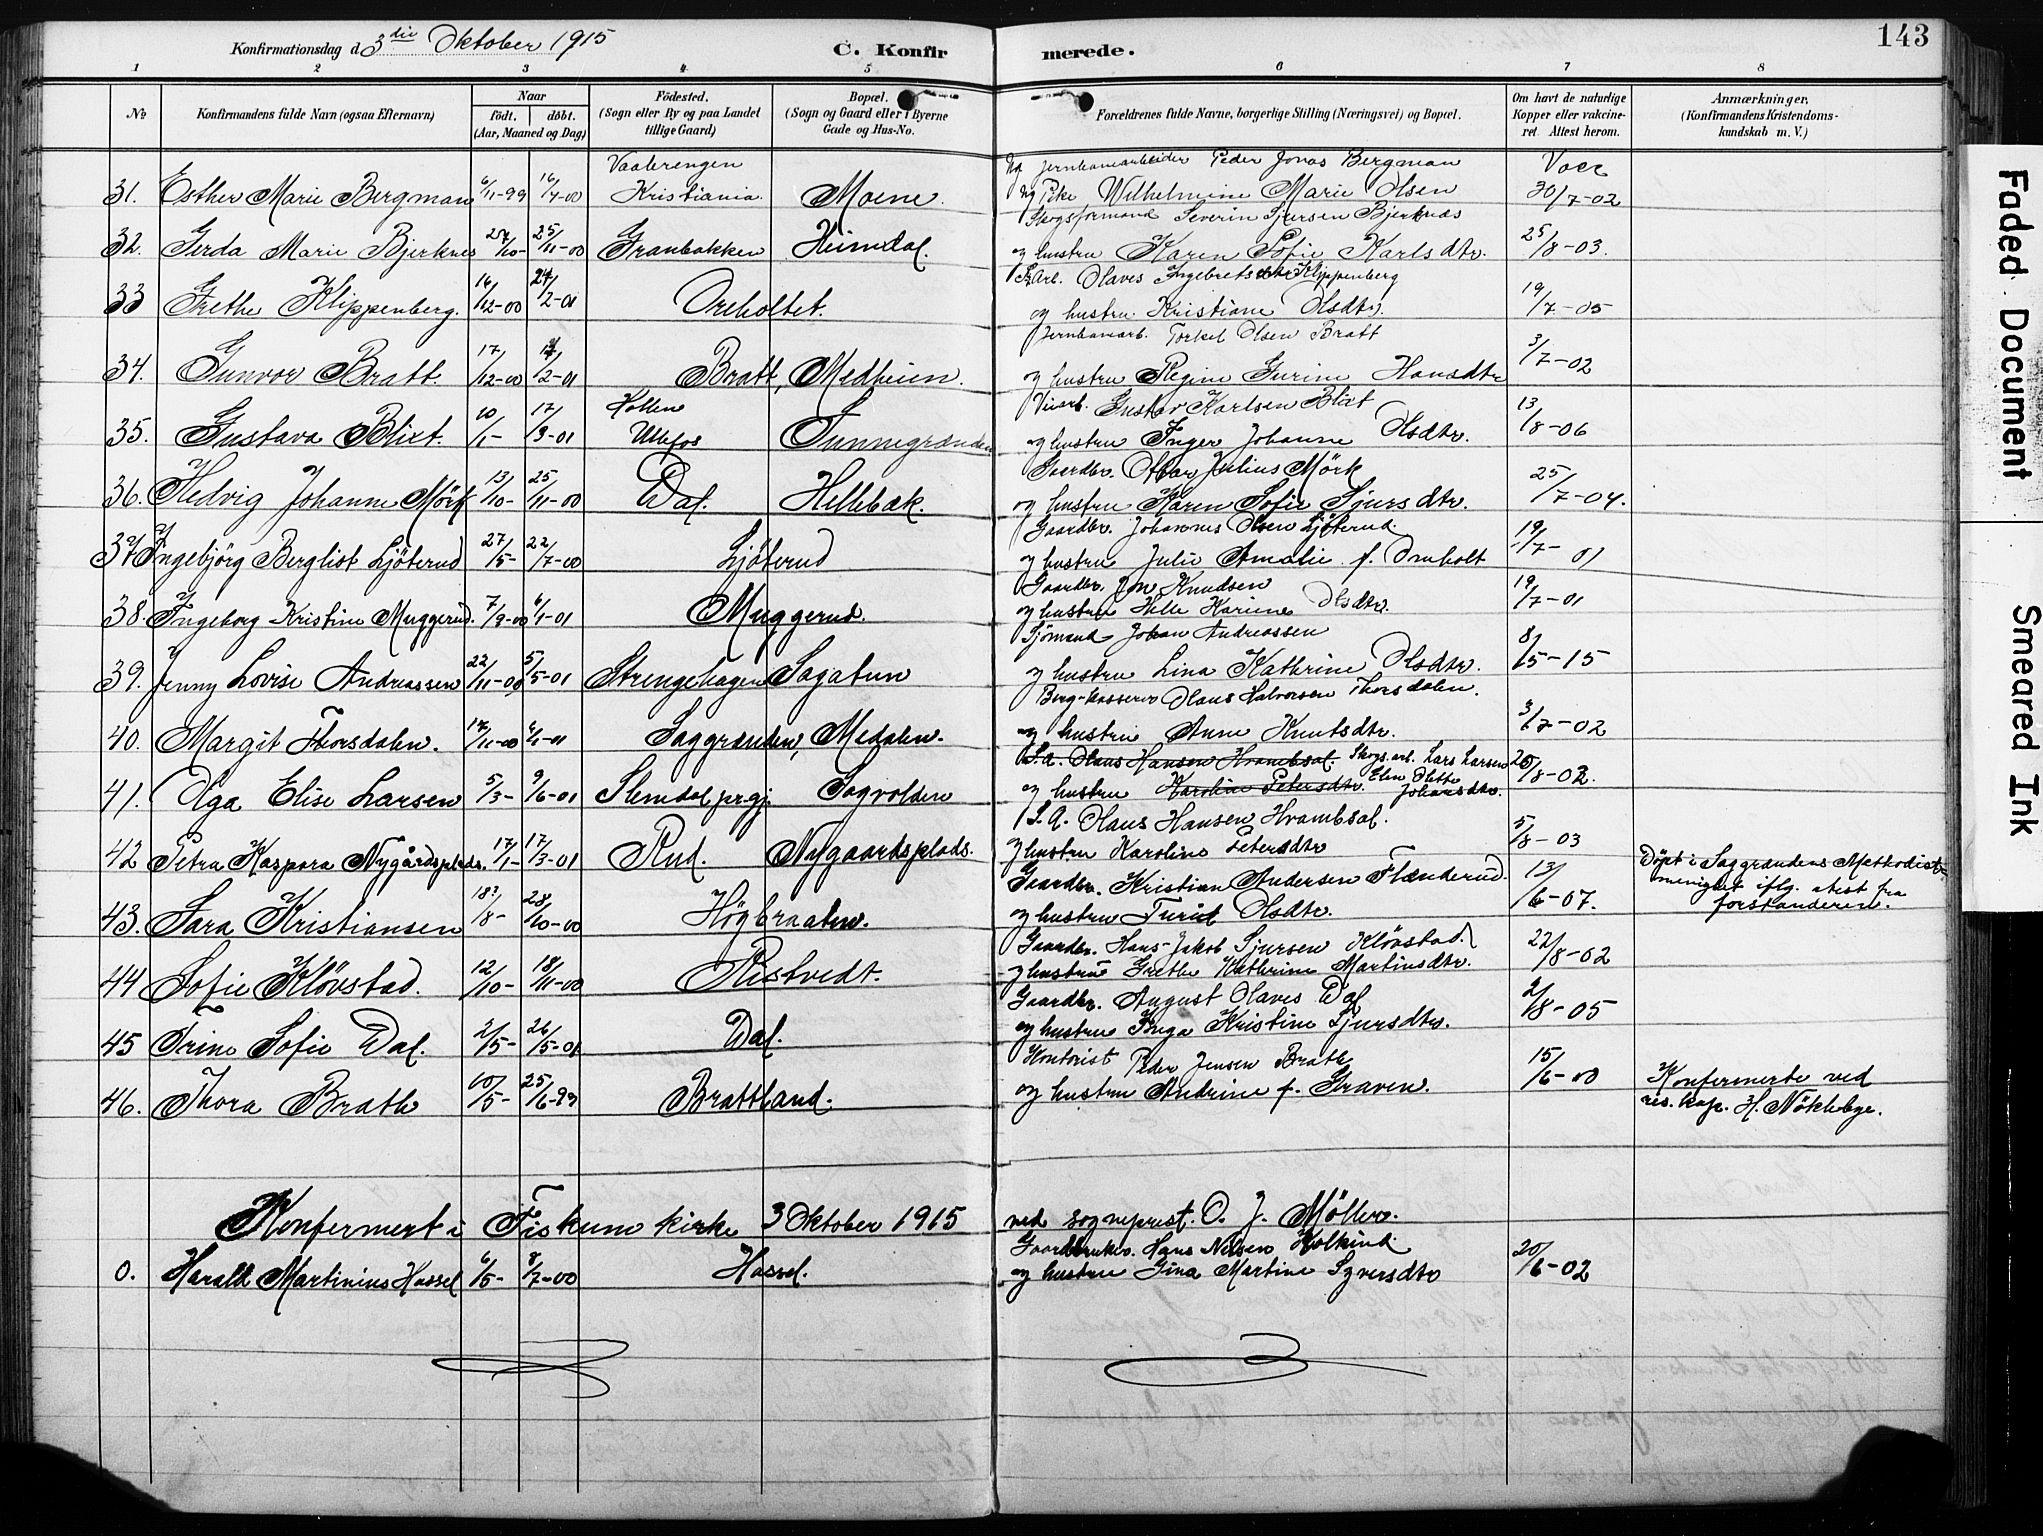 143
Konfirmationsdag d. 3die Oktober 1915 C. Konfirmerede.
1 2 3 4 5 6 7 8
No Konfirmandens fulde Navn (ogsaa Efternavn) Naar født. døbt. (Aar, Maaned og Dag) Fødested. (Sogn eller By og paa Landet tillige Gaard) Bopæl. (Sogn og Gaard eller i Byerne Gade og Hus-No. Forældrenes fulde Navne, borgerlige Stilling (Næringsvei) og Bopæl. Om havt de naturlige Kopper eller vakcineret. Attest herom. Anmærkninger. (Konfirmandens Kristendomskundskab m. V.)
Vaalerengen Ug Jernbanearbeider Peder Jonas Bergman Vacc
31. Esther Marie Bergman 6/11-99 16/4-00 Kristiania Moene. Ug Pike Wilhelmine Marie Olsen 30/7-02
Skogsformand Severin Sjursen Bjerknes
32. Gerda Marie Bjerknes 27/10- 25/11-00 Granbakken Heimdal. og hustru Karen Sofie Karlsdtr. 25/8-03.
Olaves Ingebretsen Klippenberg
33 Grethe Klippenberg. 16/12-00 24/2-01 Oreholtet. og hustru Kristiane Olsdtr. 19/7-05
Jernbanearb. Torkel Olsen Bratt
34. Gunvor Bratt. 17/12-00 /2-01 Bratt, Medheien. og hustru Regine Gurine Hansdtr 3/7-02
Hollen Veiarb. Gustav Karlsen Blixt
35. Gustava Blixt. 10/1- 17/3-01 Ulefos Tunnegrænden og hustru Inger Johanne Olsdtr. 13/8-06
Gaardbr. Olav Julius Mörk
36. Hedvig Johanne Mörk 13/10- 25/11-00 Dal. Hellebæk. og hustru Karen Sofie Sjursdtr. 25/7-04.
Gaardbr. Johannes Olsen Ljöterud.
37. Ingebjörg Bergliot Ljöterud 27/5- 22/7-00 Ljöterud og hustru Julie Amalie f. Omholt 19/7-01
Gaardbr. Jon Knudsen
38. Ingeborg Kristine Muggerud. 7/9-00 6/1-01 Muggerud. og hustru Helle Karine Olsdtr. 19/7-01
Sjömand Johan Andreassen
39. Jenny Lovise Andreassen 22/11-00 5/5-01 Strengehagen Sagatun og hustru Lina Kathrine Olsdtr. 8/5-15
Berg-kasserer Olaus Halvorsen Thorsdalen.
40. Margit Thorsdalen. 17/11-00 6/1-01 Saggrænden, Medalen. og hustru Anne Knutsdtr. 3/7-02
S.a. Olaus Hansen Hrambsal. Skogs.arb. Lars Larsen
41. Olga Elise Larsen 5/3- 9/6-01 Slemdal prgj. Sagvolden og hustru Karoline Petersdtr. Elen Olette Johansdtr. 20/8-02.
S.A. Olaus Hansen Hrambsal.
42 Petra Kaspara Nygårdsplads. 17/1- 17/3-01 Rud. Nygaardsplads. og hustru Karoline Petersdtr 5/8-03
Gaardbr. Kristian Andersen Flænderud
43. Sara Kristiansen 18?/8- 28/10-00 Högbraaten. og hustru Turid Olsdtr. 13/6-07. Döpt i Saggrændens Methodistmenighet iflg. atest fra forstanderen.
Gaardbr. Hans Jakob Sjursen Klövstad.
44 Sofie Klövstad. 12/10- 18/11-00 Ristvedt. og hustru Grethe Kathrine Martinsdtr. 22/8-02
Gaardbr. August Olaves Dal
45 Trine Sofie Dal. 2/5- 26/5-01 Dal. og hustru Inga Kristine Sjursdtr. 2/8-05
Kontorist Peder Jensen Brath
46. Thora Brath 10/5- 25/6-99 Brattland. og hustru Andrine f. Graven. 15/6-00 Konfermerte ved res. kap. H. Nöklebye.
Konfermert i Fiskum kirke 3 Oktober 1915 ved sogneprest O. J. Möller.
Gaardbruker. Hans Nilsen Kolkind
0. Harald Martinius Hassel 6/5- 8/7-00 Hassel. og hustru Gina Martine Syversdtr 20/6-02
Faded Document
Smeared Ink